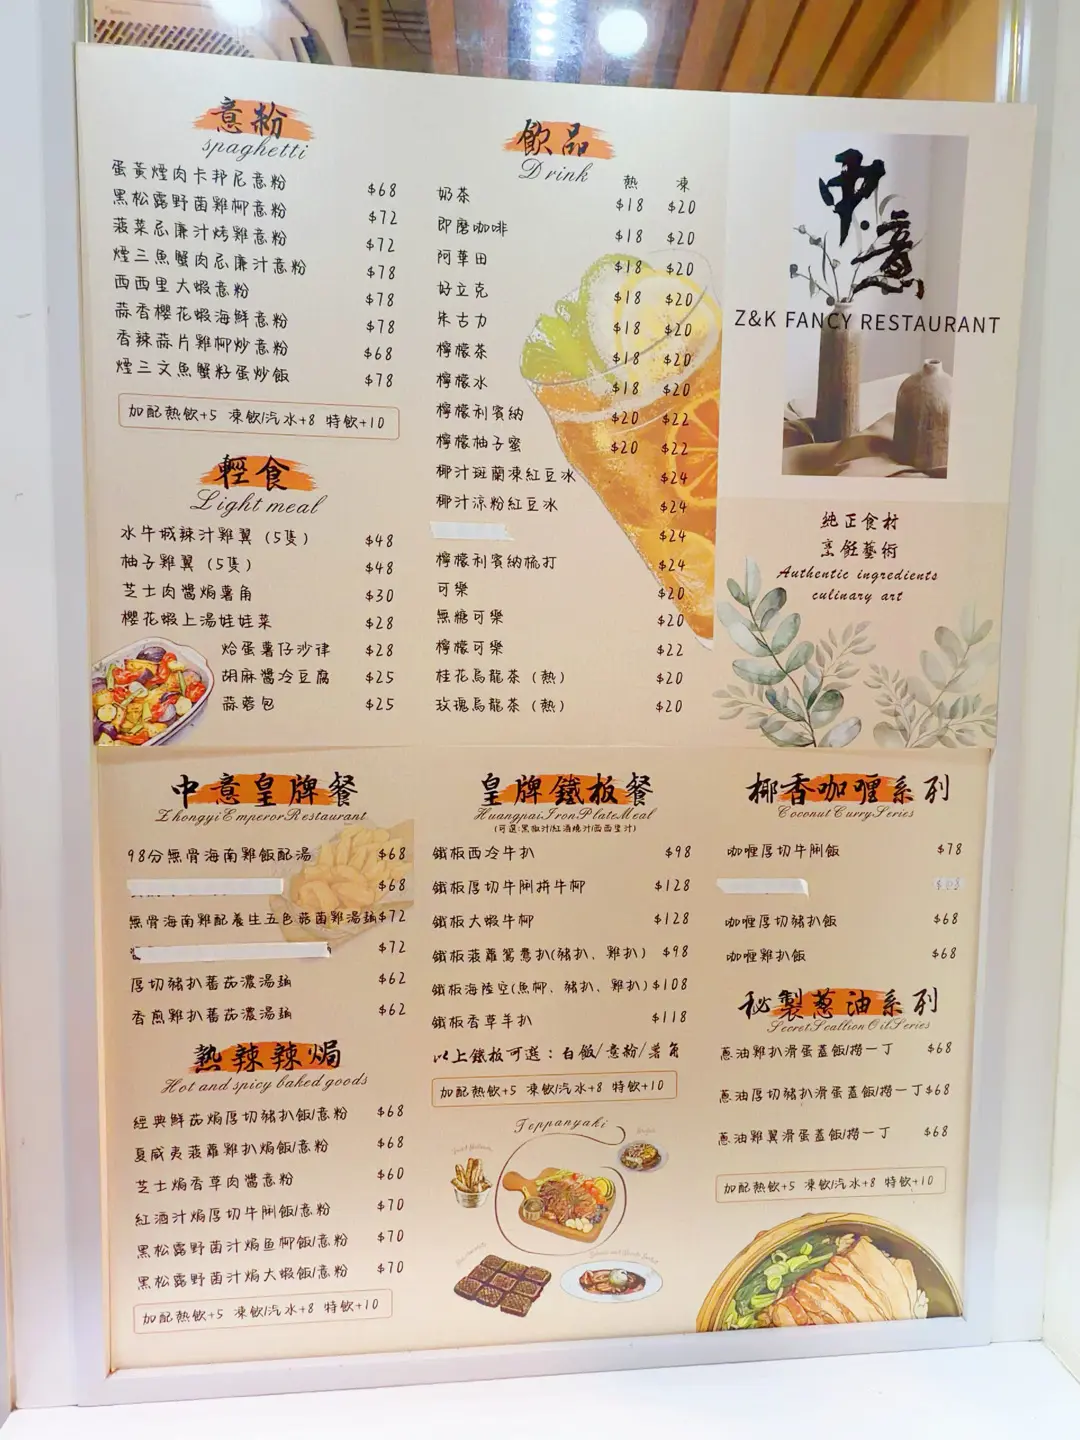 意粉
spaghetti
蛋黃煙肉卡邦尼意粉 $68
黑松露野菌雞柳意粉 $72
菠菜忌廉汁烤雞意粉 $72
煙三魚蟹肉忌廉汁意粉 $78
西西里大蝦意粉 $78
蒜香櫻花蝦海鮮意粉 $78
香辣蒜片雞柳炒意粉 $68
煙三文魚蟹籽蛋炒飯 $78
加配熱飲+5 凍飲/汽水+8 特飲+10
輕食
Light meal
水牛城辣汁雞翼（5隻） $48
柚子雞翼（5隻） $48
芝士肉醬焗薯角 $30
櫻花蝦上湯娃娃菜 $28
烚蛋薯仔沙律 $28
胡麻醬冷豆腐 $25
蒜蓉包 $25
飲品
Drink
熱 凍
奶茶 $18 $20
即磨咖啡 $18 $20
阿華田 $18 $20
好立克 $18 $20
朱古力 $18 $20
檸檬茶 $18 $20
檸檬水 $18 $20
檸檬利賓納 $20 $22
檸檬柚子蜜 $20 $22
椰汁斑蘭凍紅豆冰 $24
椰汁涼粉紅豆冰 $24
$24
檸檬利賓納梳打 $24
可樂 $20
無糖可樂 $20
檸檬可樂 $22
桂花烏龍茶（熱） $20
玫瑰烏龍茶（熱） $20
中意
Z&K FANCY RESTAURANT
純正食材
烹飪藝術
Authentic ingredients
culinary art
中意皇牌餐
ZhongyiEmperorRestaurant
98分無骨海南雞飯配湯 $68
$68
無骨海南雞配養生五色菇菌雞湯麵 $72
$72
厚切豬扒蕃茄濃湯麵 $62
香煎雞扒蕃茄濃湯麵 $62
熱辣辣焗
Hot and spicy baked goods
經典鮮茄焗厚切豬扒飯/意粉 $68
夏威夷菠蘿雞扒焗飯/意粉 $68
芝士焗香草肉醬意粉 $60
紅酒汁焗厚切牛脷飯/意粉 $70
黑松露野菌汁焗魚柳飯/意粉 $70
黑松露野菌汁焗大蝦飯/意粉 $70
加配熱飲+5 凍飲/汽水+8 特飲+10
皇牌鐵板餐
HuangpaiIronPlateMeal
(可選:黑椒汁/紅酒燒汁/西西里汁)
鐵板西冷牛扒 $98
鐵板厚切牛脷拼牛柳 $128
鐵板大蝦牛柳 $128
鐵板菠蘿鴛鴦扒(豬扒、雞扒) $98
鐵板海陸空(魚柳、豬扒、雞扒) $108
鐵板香草羊扒 $118
以上鐵板可選：白飯/意粉/薯角
加配熱飲+5 凍飲/汽水+8 特飲+10
Teppanyaki
椰香咖喱系列
CoconutCurrySeries
咖喱厚切牛脷飯 $78
咖喱厚切豬扒飯 $68
咖喱雞扒飯 $68
秘製蔥油系列
SecretScallionOilSeries
蔥油雞扒滑蛋蓋飯/撈一丁 $68
蔥油厚切豬扒滑蛋蓋飯/撈一丁 $68
蔥油雞翼滑蛋蓋飯/撈一丁 $68
加配熱飲+5 凍飲/汽水+8 特飲+10